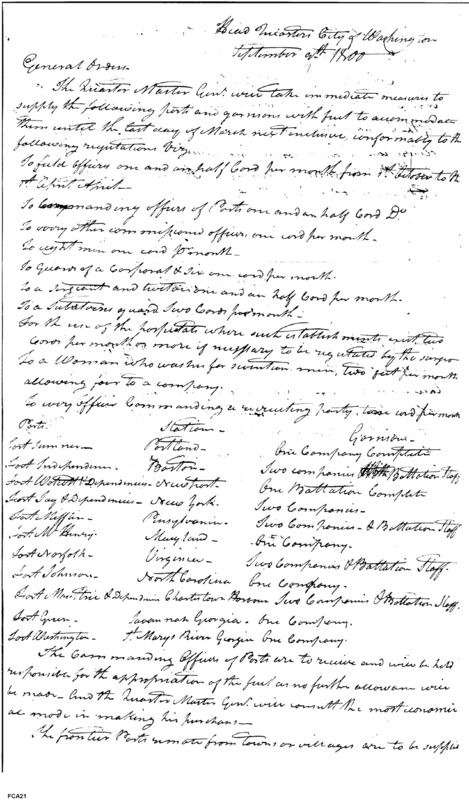 Head Quarters City of Washington
September 9th 1800
General Orders
The Quarter Master Genl. will take immediate measures to
supply the following posts and garrisons with fuel to accommodate
them until the last day of March next inclusive, conformably to the
following regulations Viz.
To field officers one and an half Cord per month from 1st October to the
1st April April
To Commanding officers of Posts one and an half Cord Do
To every other commissioned officer one cord per month
To eight men one cord pr month
To Guards of a Corporal & Six one cord per month.
To a Sergeant and twelve one and an half Cord per month.
To a Subalterns guard Two Cords per month
For the use of the hospitals where such establishments exist two
Cords per month or more if necessary to be regulated by the surgeon
To a Woman who washes for seventeen men, two feet per month
allowing four to a company.
To every officer Commanding a recruiting party, one cord per month
Posts Station Garrison
Fort Sumner Portland One Company Complete
Fort Independence Boston Two companies Battalion Staff
Fort Wolcott & Dependencies Newport One Battalion Complete
Fort Jay & Dependencies New York. Two Companies
Fort Mifflin Pensylvania Two Companies & Battalion Staff
Fort McHenry Maryland One Company.
Fort Norfolk Virginia Two Companies & Battalion Staff.
Fort Johnson North Carolina One Company.
Fort Moultrie & Dependencies Charlestown Harbour Two Companies & Battalion Staff.
Fort Green Savannah Georgia One Company.
Fort Washington St. Marys River Georgia One Company.
The Commanding Officers of Posts are to receive and will be held
responsible for the appropriation of the fuel as no further allowance will
be made And the Quarter Master Genl. will consult the most economic
al mode in making his purchases
The frontier Posts remote from towns or villages are to be supplied
FCA21